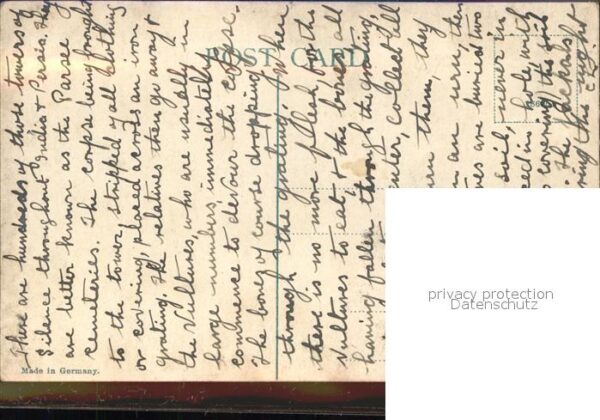 There are hundreds of those towers of
Silence throughout India & Persia. They
are better known as the Parsee
cemeteries. The corpse being brought
to the tower, stripped of all clothing
or covering, placed across an iron
grating. The relatives then go away &
the Vultures, who are usually in
large numbers, immediately
commence to devour the corpse.
The bones of course dropping
through the grating. When
there is no more flesh for the
Vultures to eat, & the bones all
having fallen through the grating,
enter, collect all
burn them, they
in an urn, then
are buried two
soil, never in
hole with
covering the soil
The Jackals
during the night
POST CARD
Made in Germany.
privacy protection
Datenschutz